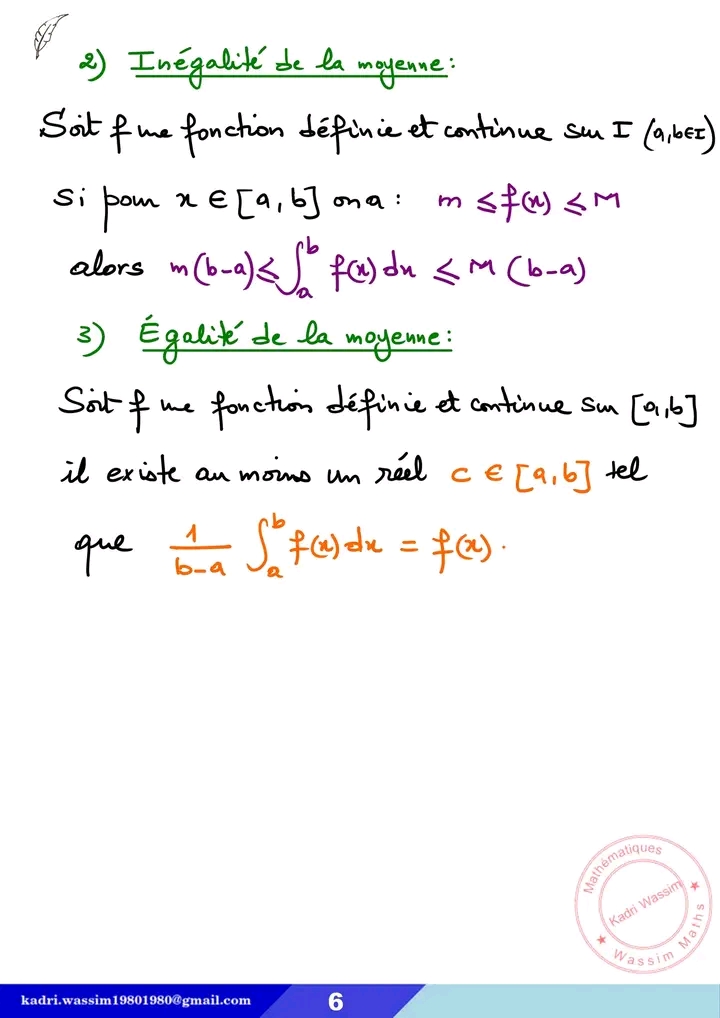 2) Inégalité de la moyenne :
Soit f une fonction définie et continue sur I (a,b∈I)
Si pour x ∈ [a,b] on a : m ≤ f(x) ≤ M
alors m(b-a) ≤ ∫_a^b f(x) dx ≤ M (b-a)
3) Égalité de la moyenne :
Soit f une fonction définie et continue sur [a,b]
il existe au moins un réel c ∈ [a,b] tel
que 1/(b-a) ∫_a^b f(x) dx = f(x).
Mathématiques
Kadri Wassim
★ Wassim Maths ★
kadri.wassim19801980@gmail.com
6